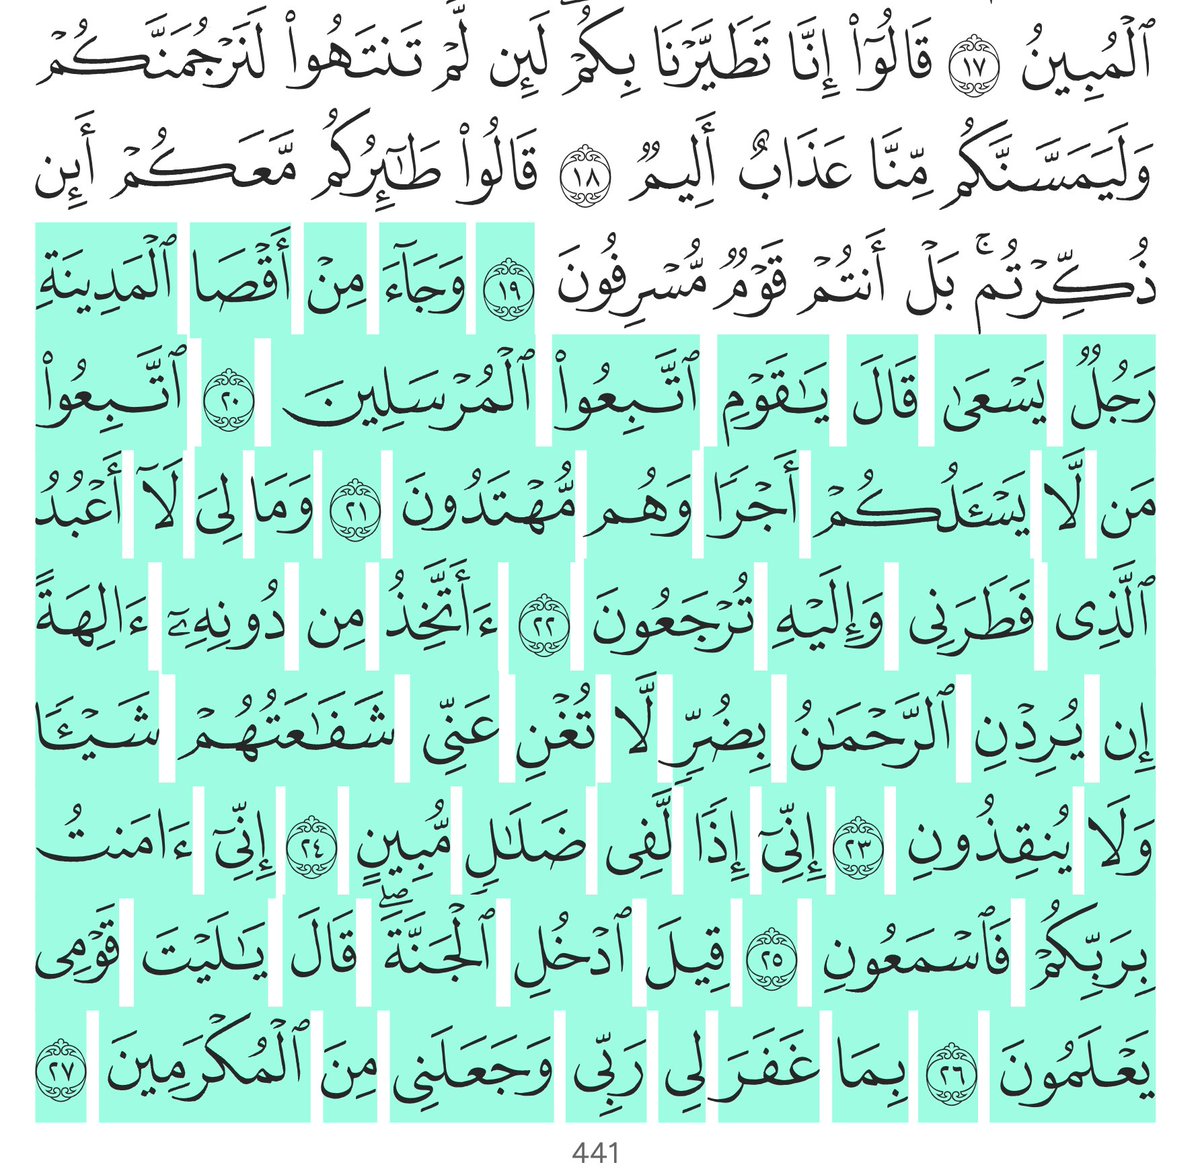 ٱلۡمُبِينُ ١٧ قَالُوٓاْ إِنَّا تَطَيَّرۡنَا بِكُمۡۖ لَئِن لَّمۡ تَنتَهُواْ لَنَرۡجُمَنَّكُمۡ
وَلَيَمَسَّنَّكُم مِّنَّا عَذَابٌ أَلِيمٞ ١٨ قَالُواْ طَٰٓئِرُكُم مَّعَكُمۡ أَئِن
ذُكِّرۡتُمۚ بَلۡ أَنتُمۡ قَوۡمٞ مُّسۡرِفُونَ ١٩ وَجَآءَ مِنۡ أَقۡصَا ٱلۡمَدِينَةِ
رَجُلٞ يَسۡعَىٰ قَالَ يَٰقَوۡمِ ٱتَّبِعُواْ ٱلۡمُرۡسَلِينَ ٢٠ ٱتَّبِعُواْ
مَن لَّا يَسۡـَٔلُكُمۡ أَجۡرٗا وَهُم مُّهۡتَدُونَ ٢١ وَمَا لِيَ لَآ أَعۡبُدُ
ٱلَّذِي فَطَرَنِي وَإِلَيۡهِ تُرۡجَعُونَ ٢٢ ءَأَتَّخِذُ مِن دُونِهِۦٓ ءَالِهَةً
إِن يُرِدۡنِ ٱلرَّحۡمَٰنُ بِضُرّٖ لَّا تُغۡنِ عَنِّي شَفَٰعَتُهُمۡ شَيۡـٔٗا
وَلَا يُنقِذُونِ ٢٣ إِنِّيٓ إِذٗا لَّفِي ضَلَٰلٖ مُّبِينٍ ٢٤ إِنِّيٓ ءَامَنتُ
بِرَبِّكُمۡ فَٱسۡمَعُونِ ٢٥ قِيلَ ٱدۡخُلِ ٱلۡجَنَّةَۖ قَالَ يَٰلَيۡتَ قَوۡمِي
يَعۡلَمُونَ ٢٦ بِمَا غَفَرَ لِي رَبِّي وَجَعَلَنِي مِنَ ٱلۡمُكۡرَمِينَ ٢٧
441